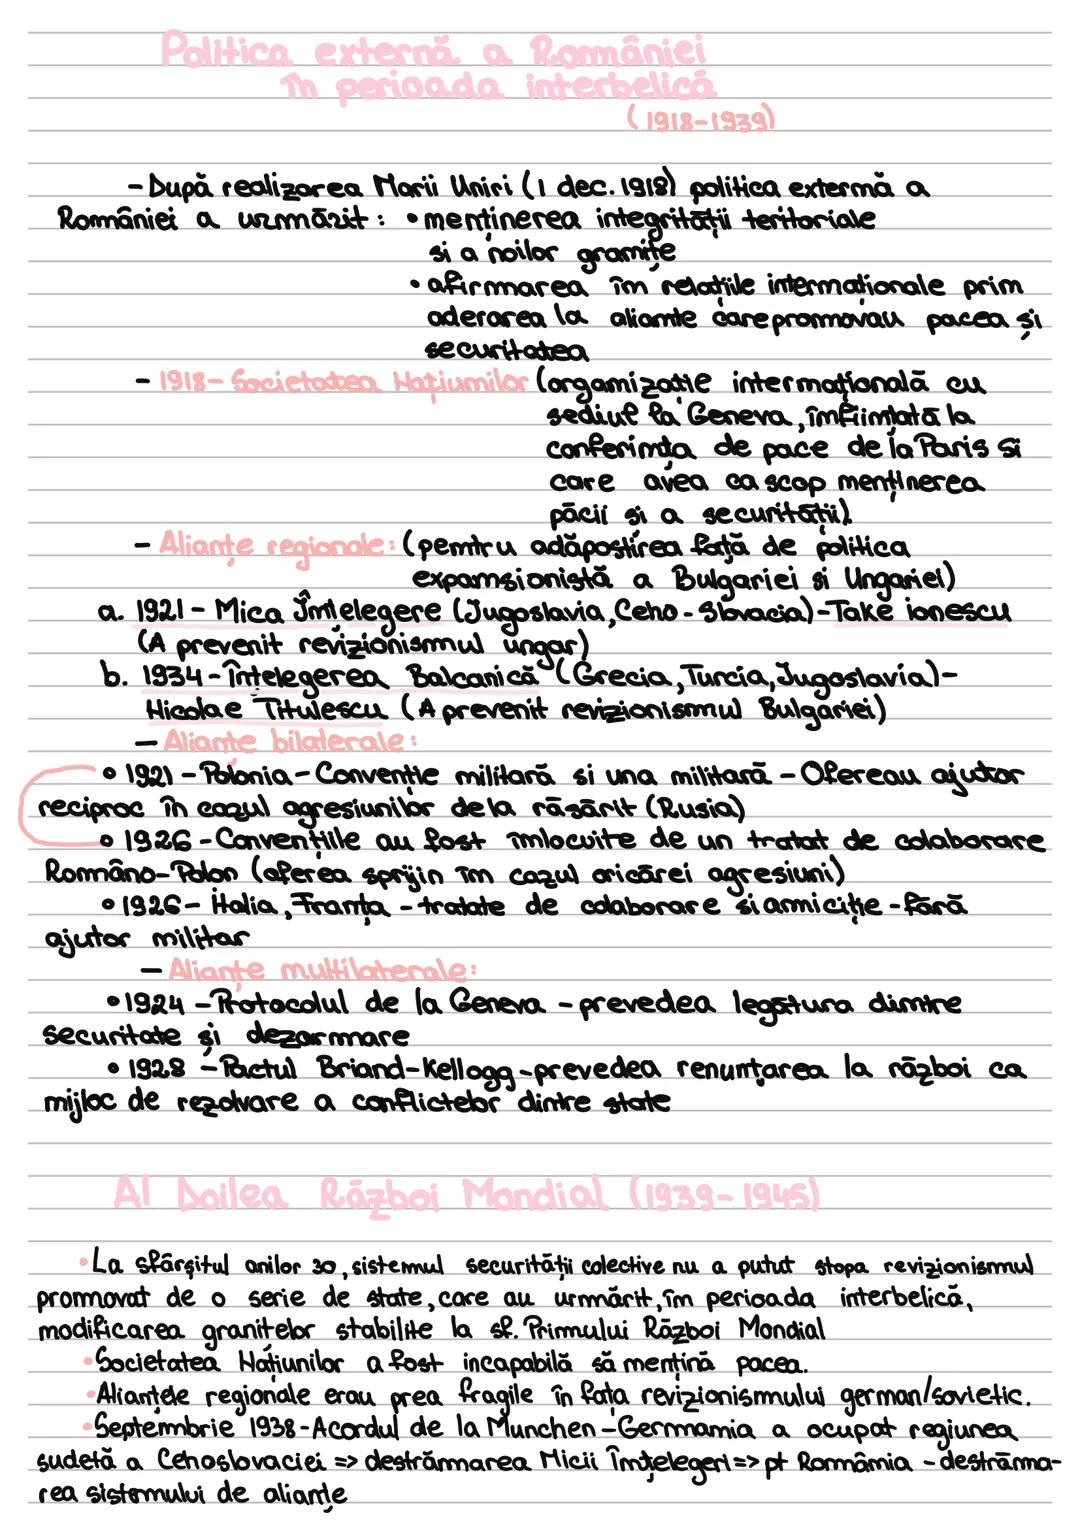 Politica externă a României
în perioada interbelică
(1918-1939)
- După realizarea Marii Uniri (1 dec. 1918) politica externă a
României a urmărit: • menținerea integrității teritoriale
si a noilor granițe
• afirmarea în relațiile internaționale prin
aderarea la aliante care promovau pacea și
securitatea
- 1918 - Societatea Națiunilor (organizație internațională cu
sediul la Geneva, înființată la
conferința de pace de la Paris si
care avea ca scop menținerea
păcii si a securității).
- Alianțe regionale: (pentru adăpostirea față de politica
expansionistă a Bulgariei si Ungariei)
a. 1921 - Mica Înțelegere (Jugoslavia, Ceho-Slovacia) - Take ionescu
(A prevenit revizionismul ungar)
b. 1934 - Înțelegerea Balcanică (Grecia, Turcia, Jugoslavia) -
Nicolae Titulescu (A prevenit revizionismul Bulgariei)
- Alianțe bilaterale:
• 1921 - Polonia - Convenție militară si una militară - Ofereau ajutor
reciproc în cazul agresiunilor de la răsărit (Rusia)
• 1926 - Convențiile au fost înlocuite de un tratat de colaborare
Româno-Polon (oferea sprijin în cazul oricărei agresiuni)
• 1926 - Italia, Franța - tratate de colaborare si amiciție - fără
ajutor militar
- Alianțe multilaterale:
• 1924 - Protocolul de la Geneva - prevedea legătura dintre
securitate și dezarmare
• 1928 - Pactul Briand-Kellogg - prevedea renunțarea la război ca
mijloc de rezolvare a conflictelor dintre state
Al Doilea Război Mondial (1939-1945)
• La sfârșitul anilor 30, sistemul securității colective nu a putut stopa revizionismul
promovat de o serie de state, care au urmărit, în perioada interbelică,
modificarea granitelor stabilite la sf. Primului Război Mondial
• Societatea Națiunilor a fost incapabilă să mențină pacea.
• Alianțele regionale erau prea fragile în fața revizionismului german/sovietic.
• Septembrie 1938 - Acordul de la Munchen - Germania a ocupat regiunea
sudetă a Cehoslovaciei => destrămarea Micii Înțelegeri => pt România - destrăma-
rea sistemului de alianțe